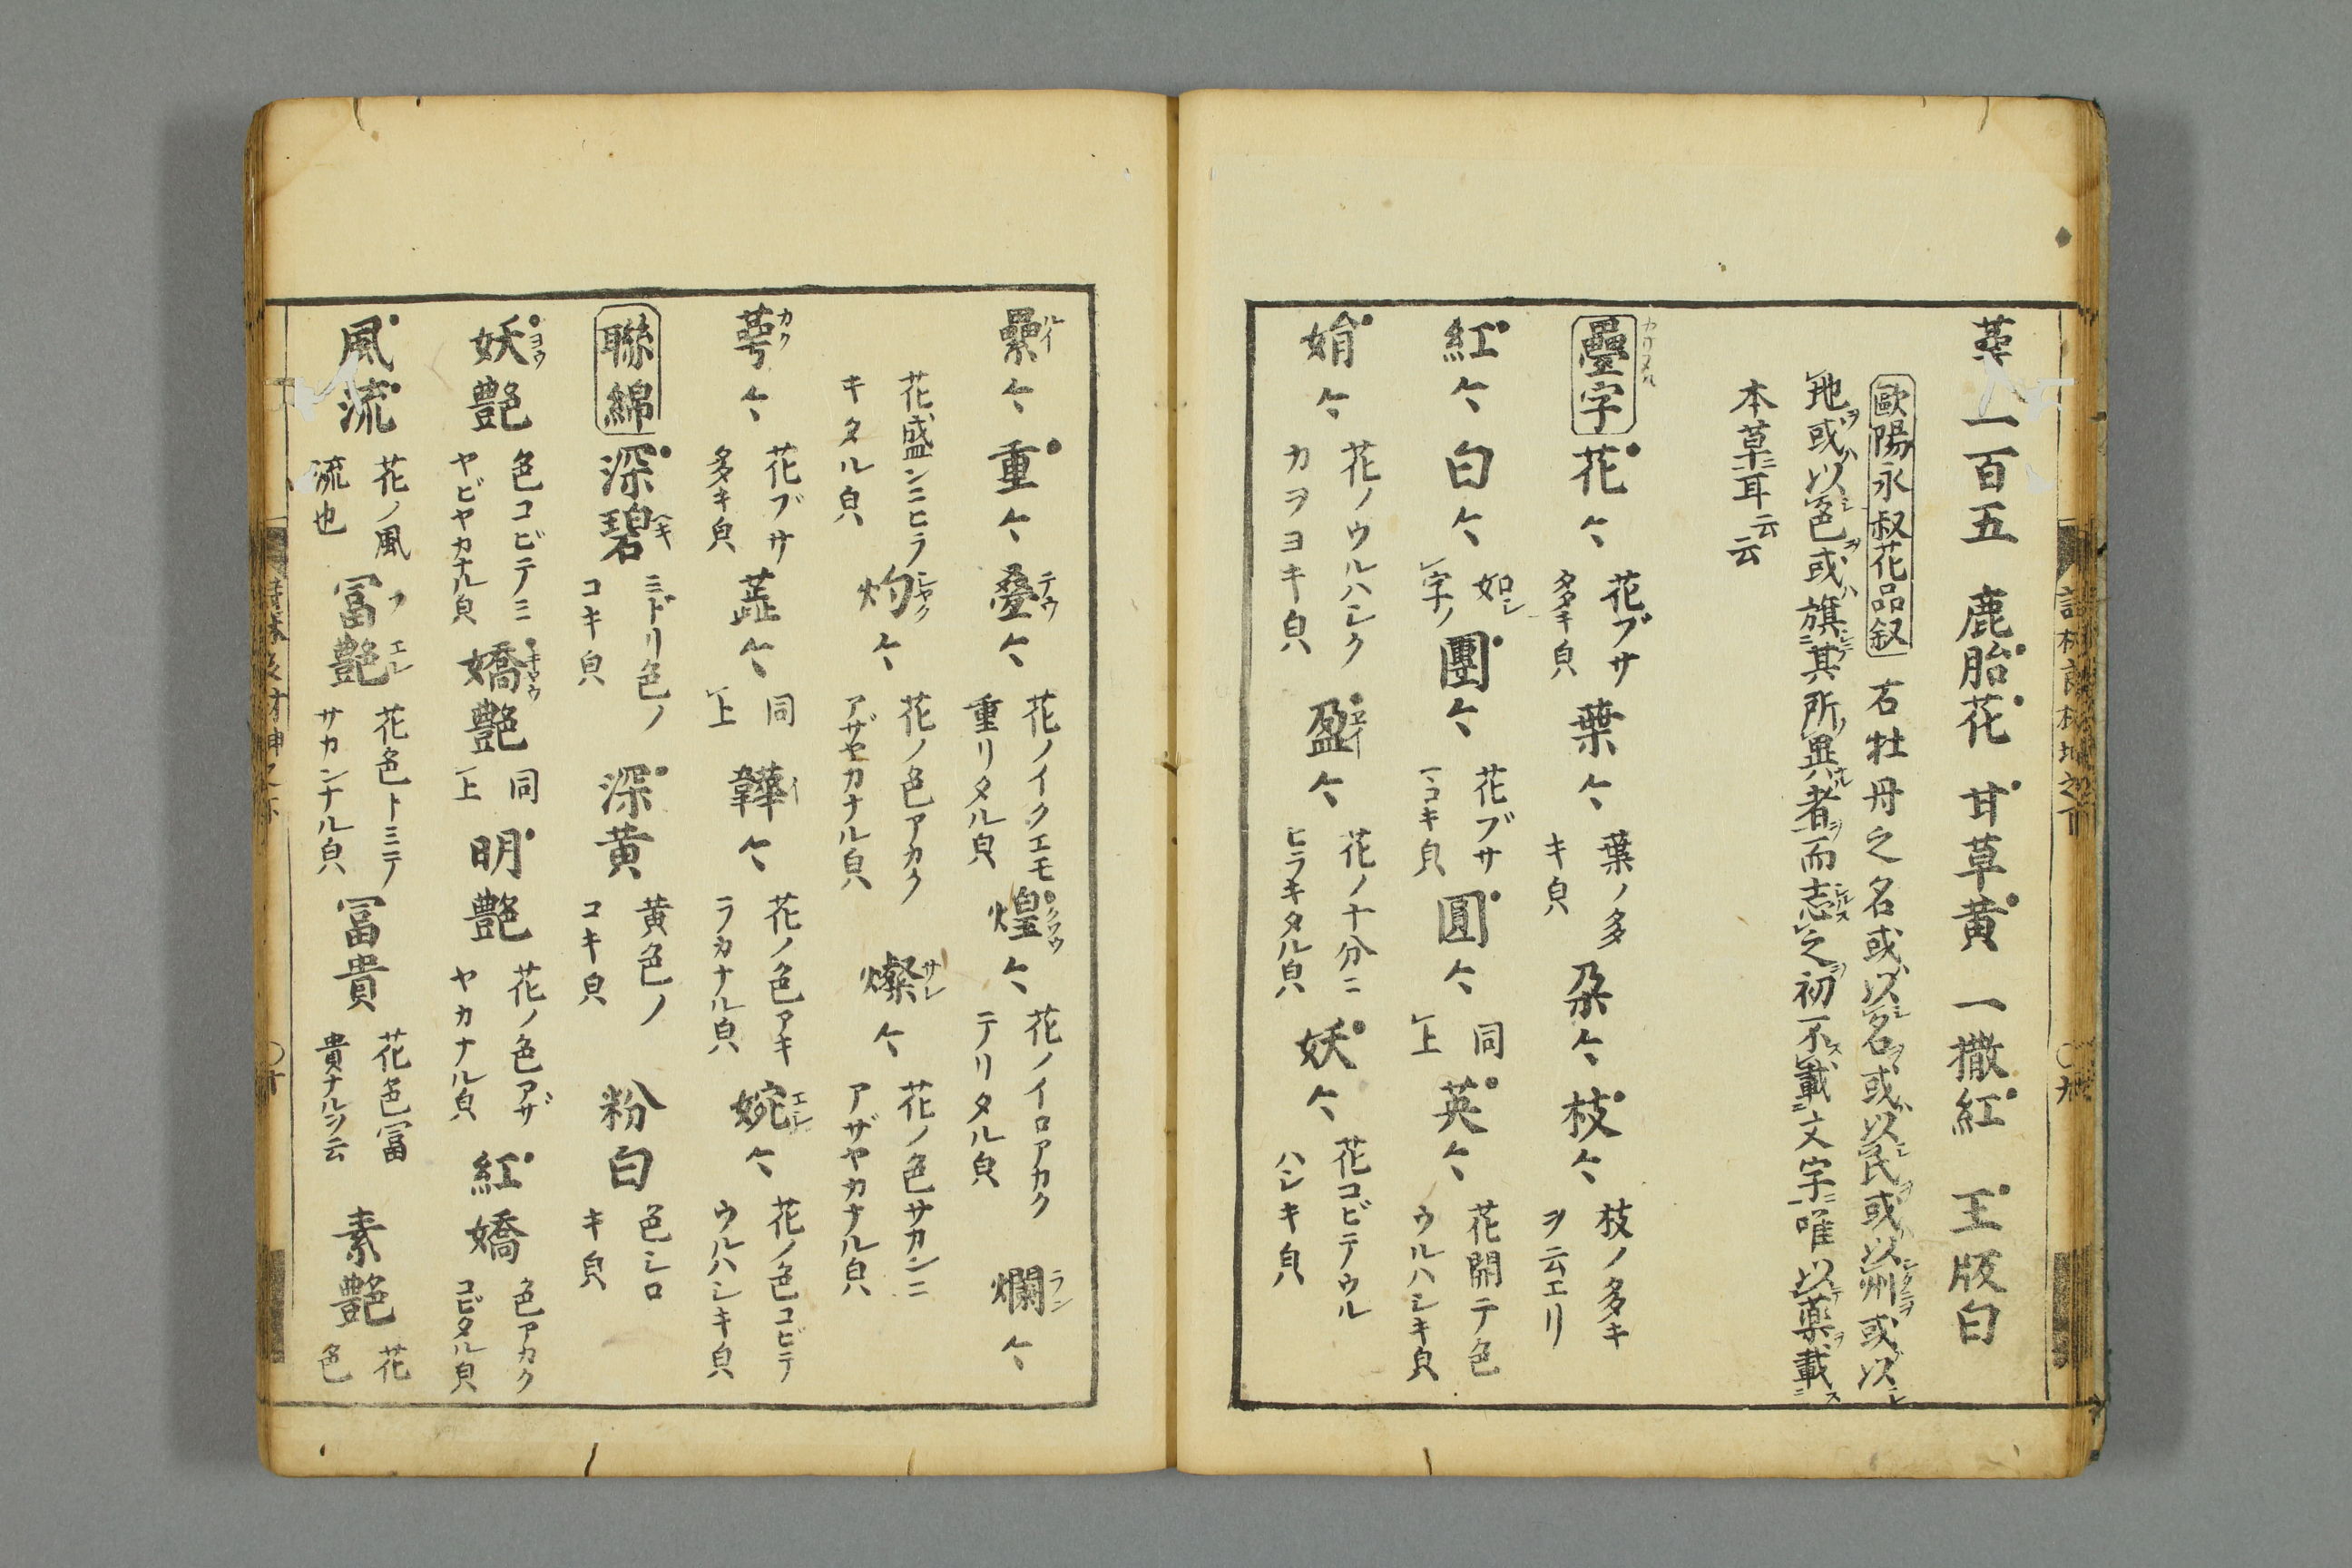 葉一百五　鹿胎花　甘草黄　一撒紅　玉版白
歐陽永叔花品叙　右牡丹之名或以名或以氏或以州或以
地或以色或旗其所異者而志之初不載文字唯以薬載
本草耳云云
疊字　花々　花ブサ多キ皃　葉々　葉ノ多キ皃　朶々　枝々　枝ノ多キヲ云エリ
紅々　白々　如字ノ　團々　花ブサコキ皃　圓々　同上　英々　花開テ色ウルハシキ皃
娟々　花ノウルハシクカヲヨキ皃　盈々　花ノ十分ニヒラキタル皃　妖々　花コビテウルハシキ皃
纍々　重々　疊々　花ノイクエモ重リタル皃　煌々　花ノイロアカクテリタル皃　爛々
花盛ンニヒラキタル皃　灼々　花ノ色アカクアザヤカナル皃　燦々　花ノ色サカンニアザヤカナル皃
萼々　花ブサ多キ皃　蕋々　同上　韡々　花ノ色アキラカナル皃　婉々　花ノ色コビテウルハシキ皃
聯綿　深碧　ミドリ色ノコキ皃　深黄　黄色ノコキ皃　粉白　色シロキ皃
妖艶　色コビテミヤビヤカナル皃　嬌艶　同上　明艶　花ノ色アザヤカナル皃　紅嬌　色アカクコビタル皃
風流　花ノ風流也　冨艶　花色トミテサカンナル皃　冨貴　花色冨貴ナルヲ云　素艶　花色